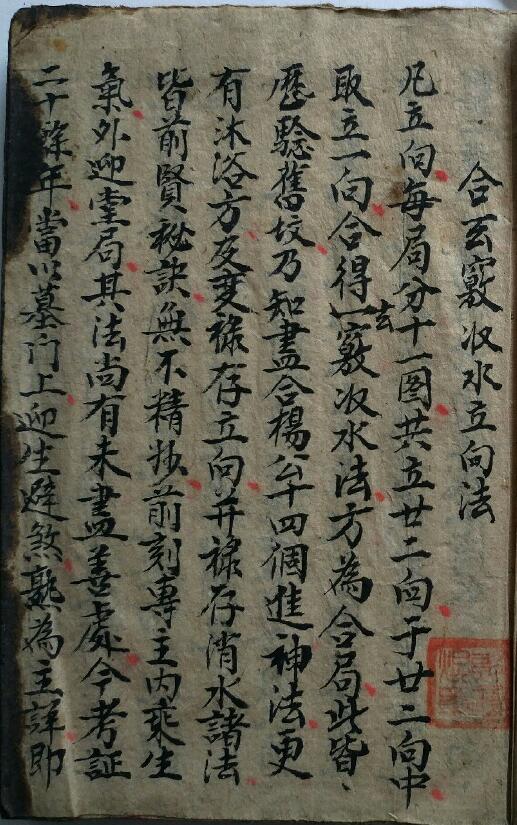 合玄竅收水立向法
凡立向每局分十一图共立廿二向于廿二向中
取立一向合得一玄竅收水法方為合局此皆
歷驗舊坟乃知盡合楊公十四個進神法更
有沐浴方及变祿存立向并祿存消水諸法
皆前賢秘訣無不精妙前刻專主内乘生
氣外迎堂局其法尚有未盡善處今考証
二十餘年當以墓门上迎生避煞為主詳即